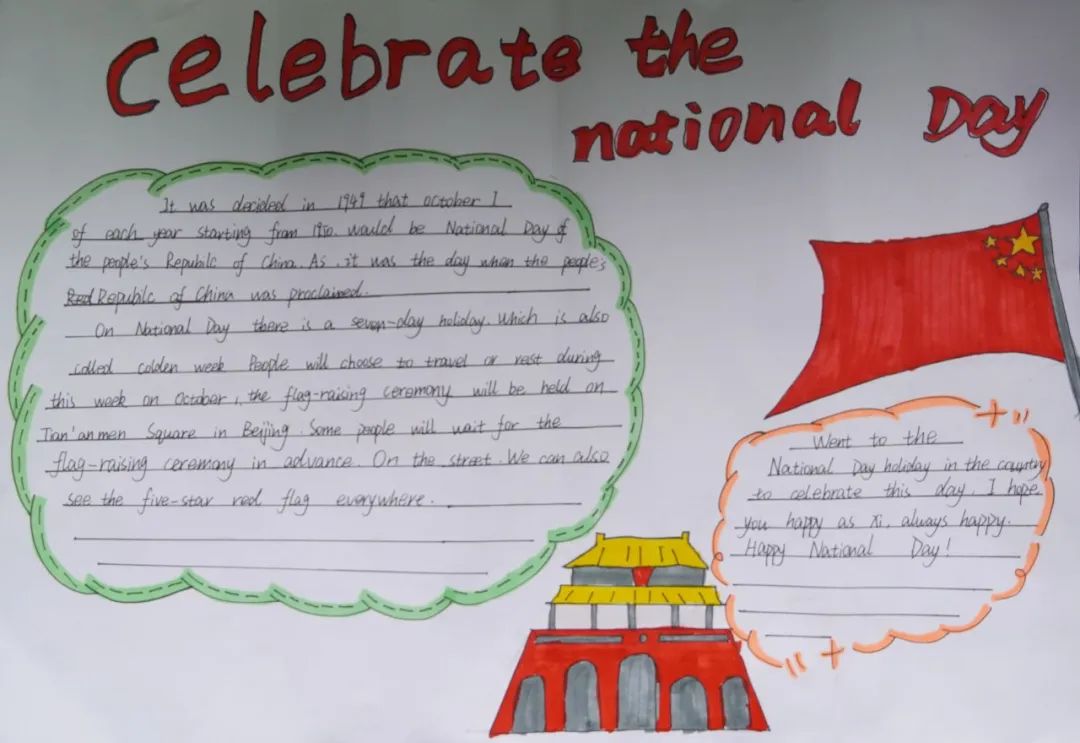 Celebrate the
national Day
It was decided in 1949 that october 1
of each year starting from 1950. would be National Day of
the people's Republic of China. As. it was the day when the people's
Red Republic of China was proclaimed.
On National Day there is a seven-day holiday. Which is also
called colden week People will choose to travel or rest during
this week on October 1, the flag-raising ceremony will be held on
Tian'anmen Square in Beijing. Some people will wait for the
flag-raising ceremony in advance. On the street. We can also
see the five-star red flag everywhere.
Went to the
National Day holiday in the country
to celebrate this day. I hope
you happy as xi, always happy.
Happy National Day!